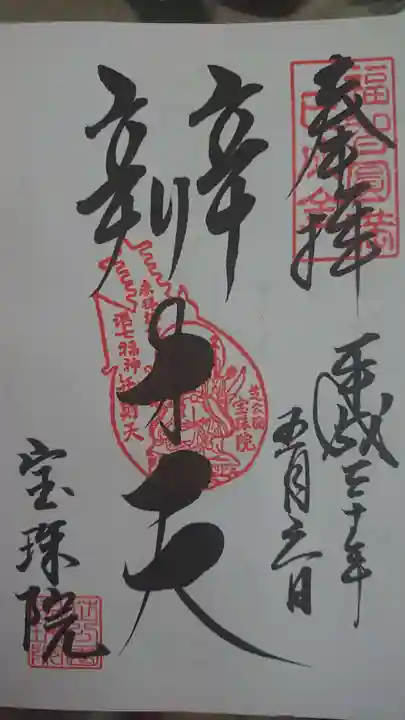 奉拝
平成三十年
五月六日
辨才天
宝珠院
港七福神弁財天
芝公園
宝珠院